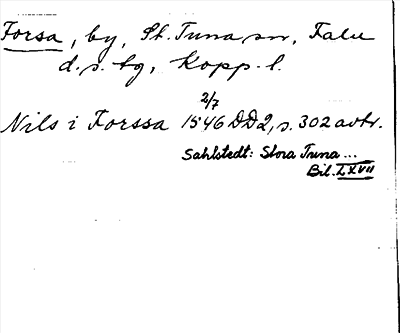 Forsa, by, St. Tuna sn, Falu
d.s. tg, Kopp. l.
2/7
Nils i Forssa 1546 DD2, s. 302 avtr.
Sahlstedt: Stora Tuna...
Bil. LXVII